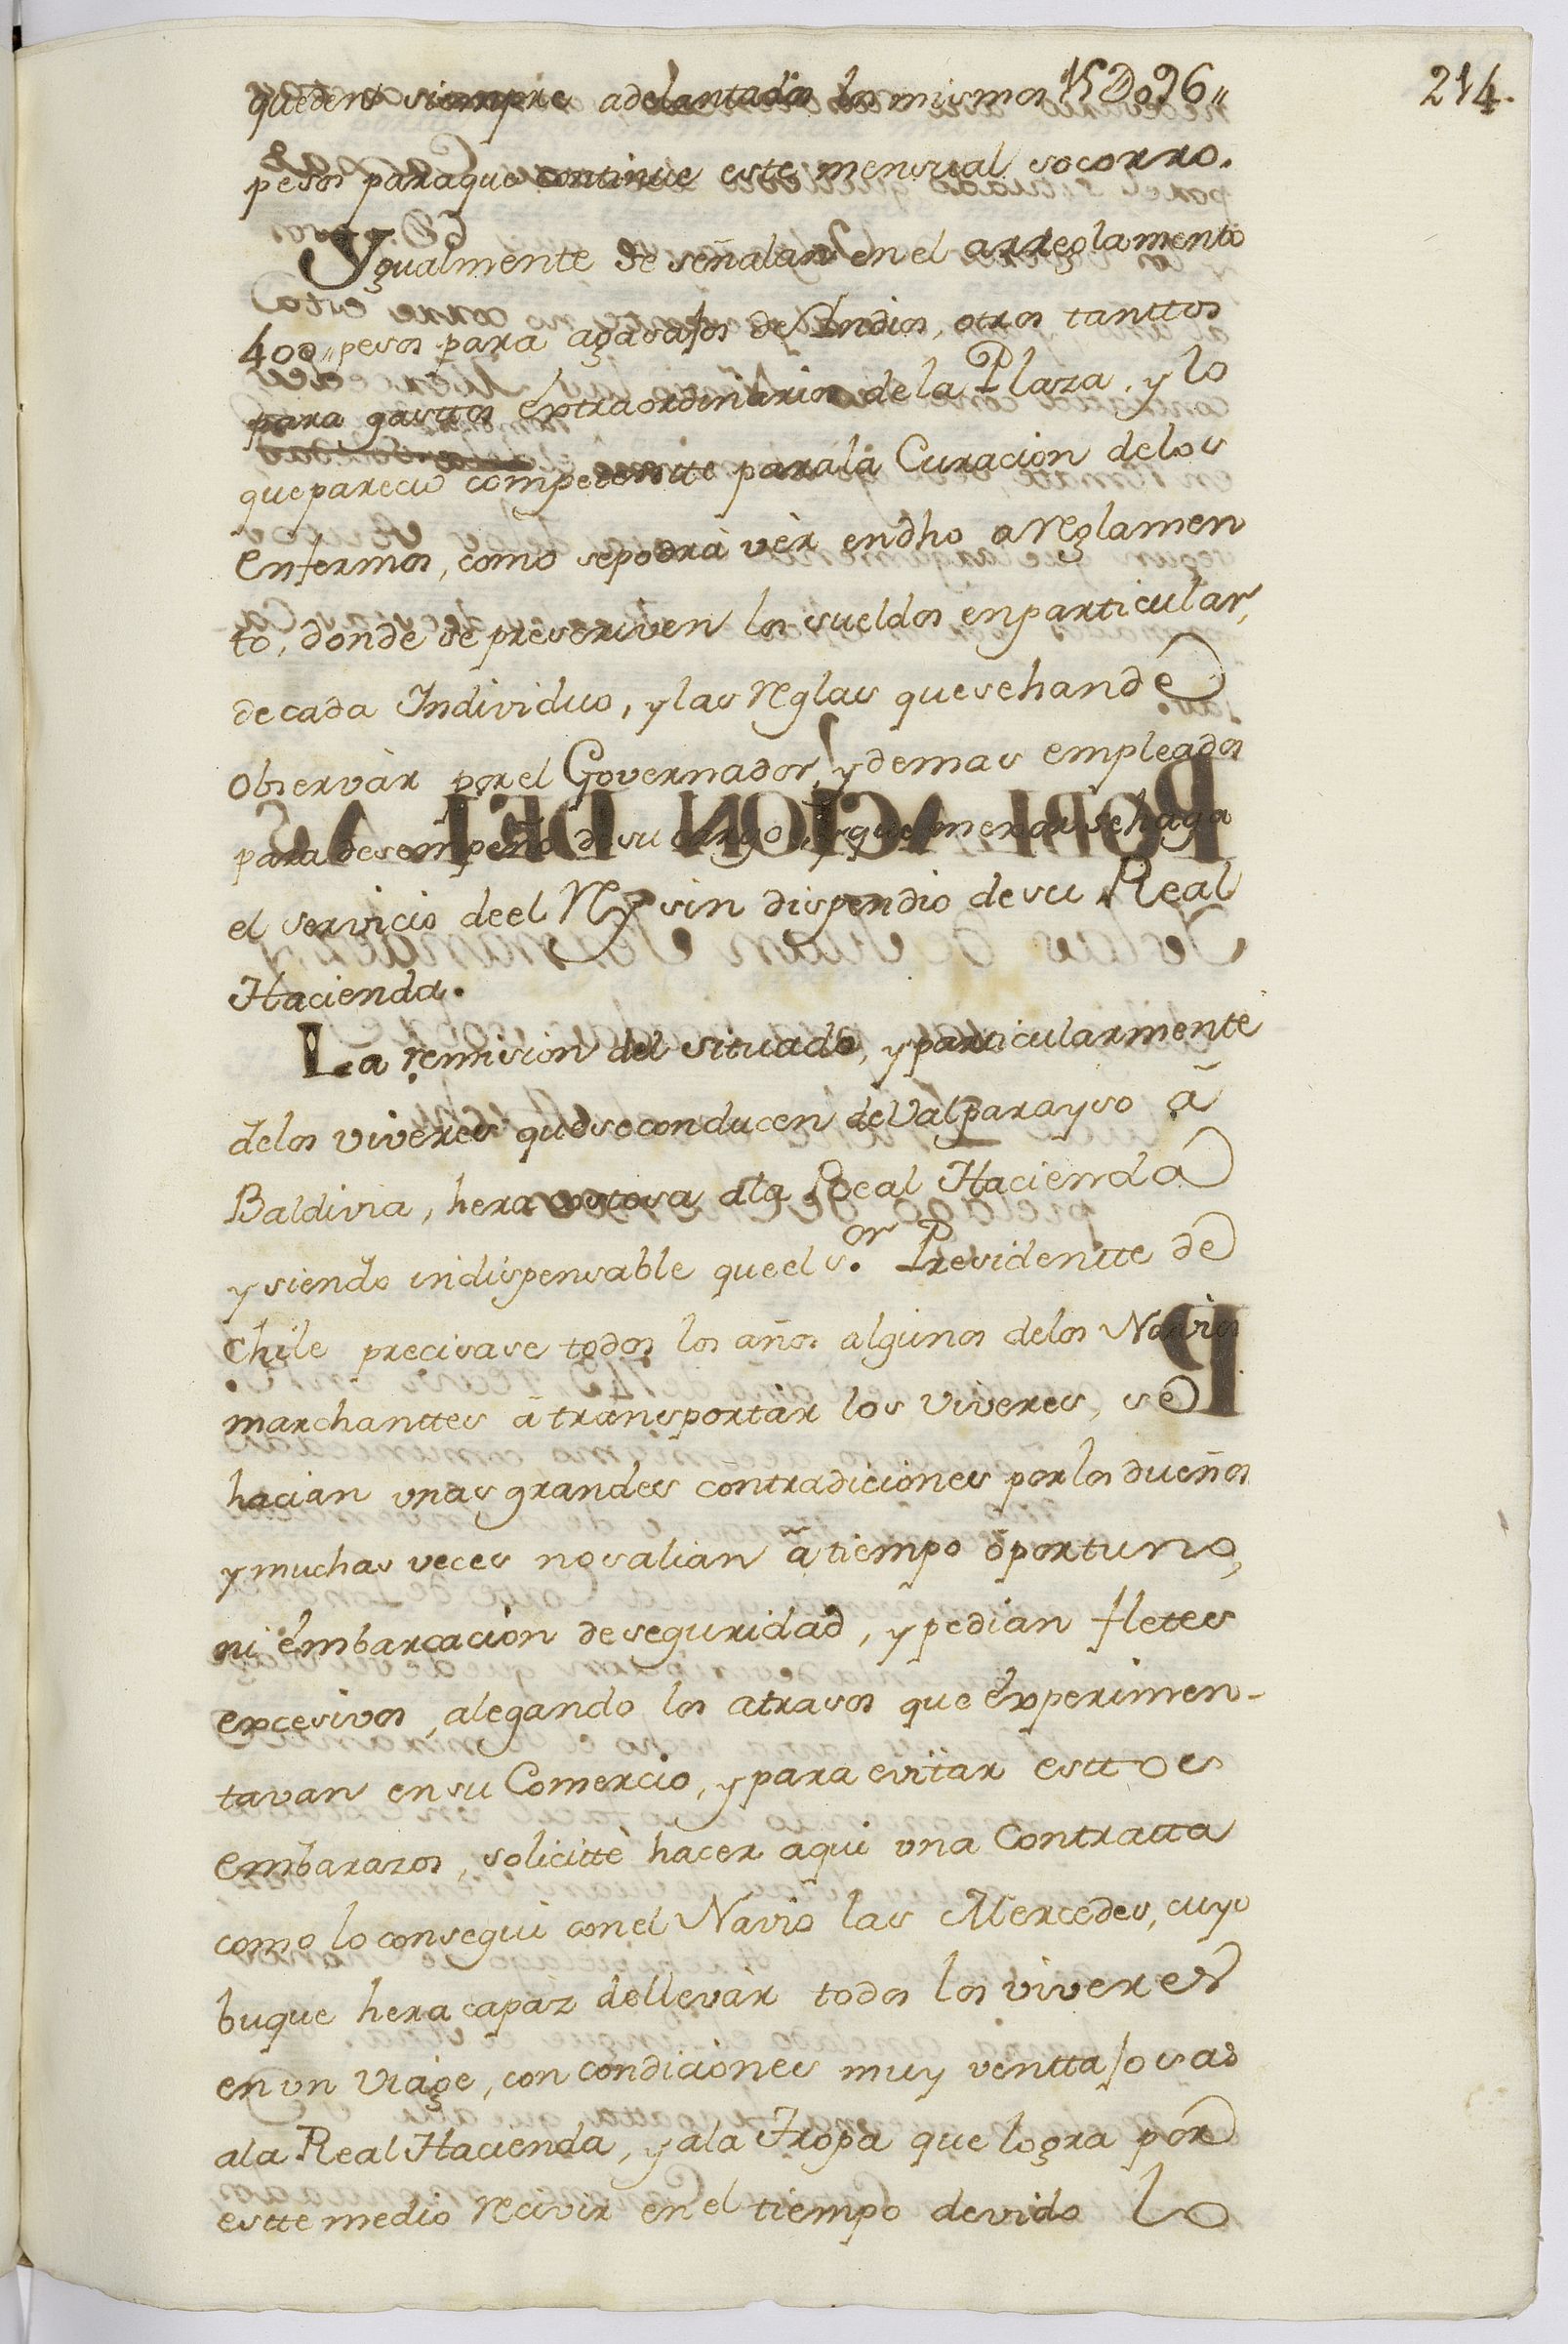 214.
queden siempre adelantados los mismos 15D096"
pesos paraque continue este mensual socorro.
Ygualmente se señalan en el arreglamento
400" pesos para agasajos de Indios, otros tanttos
para gasttos extraordinarios de la Plaza, y lo
quepareció competentte parala Curacion delos
enfermos, como sepodrà vèr endho arreglamen
to, donde se prescriven los sueldos enparticular,
decada Individuo, y las reglas quesehandé
observàr por el Governador, y demas empleados
para desempeño desu cargo, y que mexor sehaga
el servicio deel Rey sin dispendio desu Real
Hacienda.
La remision del situado, y particularmente
delos viveres queseconducen deValparayso ã
Baldivia, hera costosa ala Real Hacienda
y siendo indispensable queel s.or Presidentte de
Chile precisase todos los años algunos delos Navios
marchanttes ã transportàr los viveres, se
hacian unas grandes contradiciones por los dueños
y muchas veces nosalian ã tiempo õportuno,
ni embarcacion deseguridad, y pedian fletes
excesivos, alegando los atrasos que experimen-
tavan ensu Comercio, y para evitar esttos
embarazos, solicittè hacer aqui una Contratta
como lo consegui conel Navio las Mercedes, cuyo
buque hera capàz dellevàr todos los viveres
en un viage, con condiciones muy venttajosas
ala Real Hacienda, y ala Tropa que logra por
estte medio recivir en el tiempo devido lo